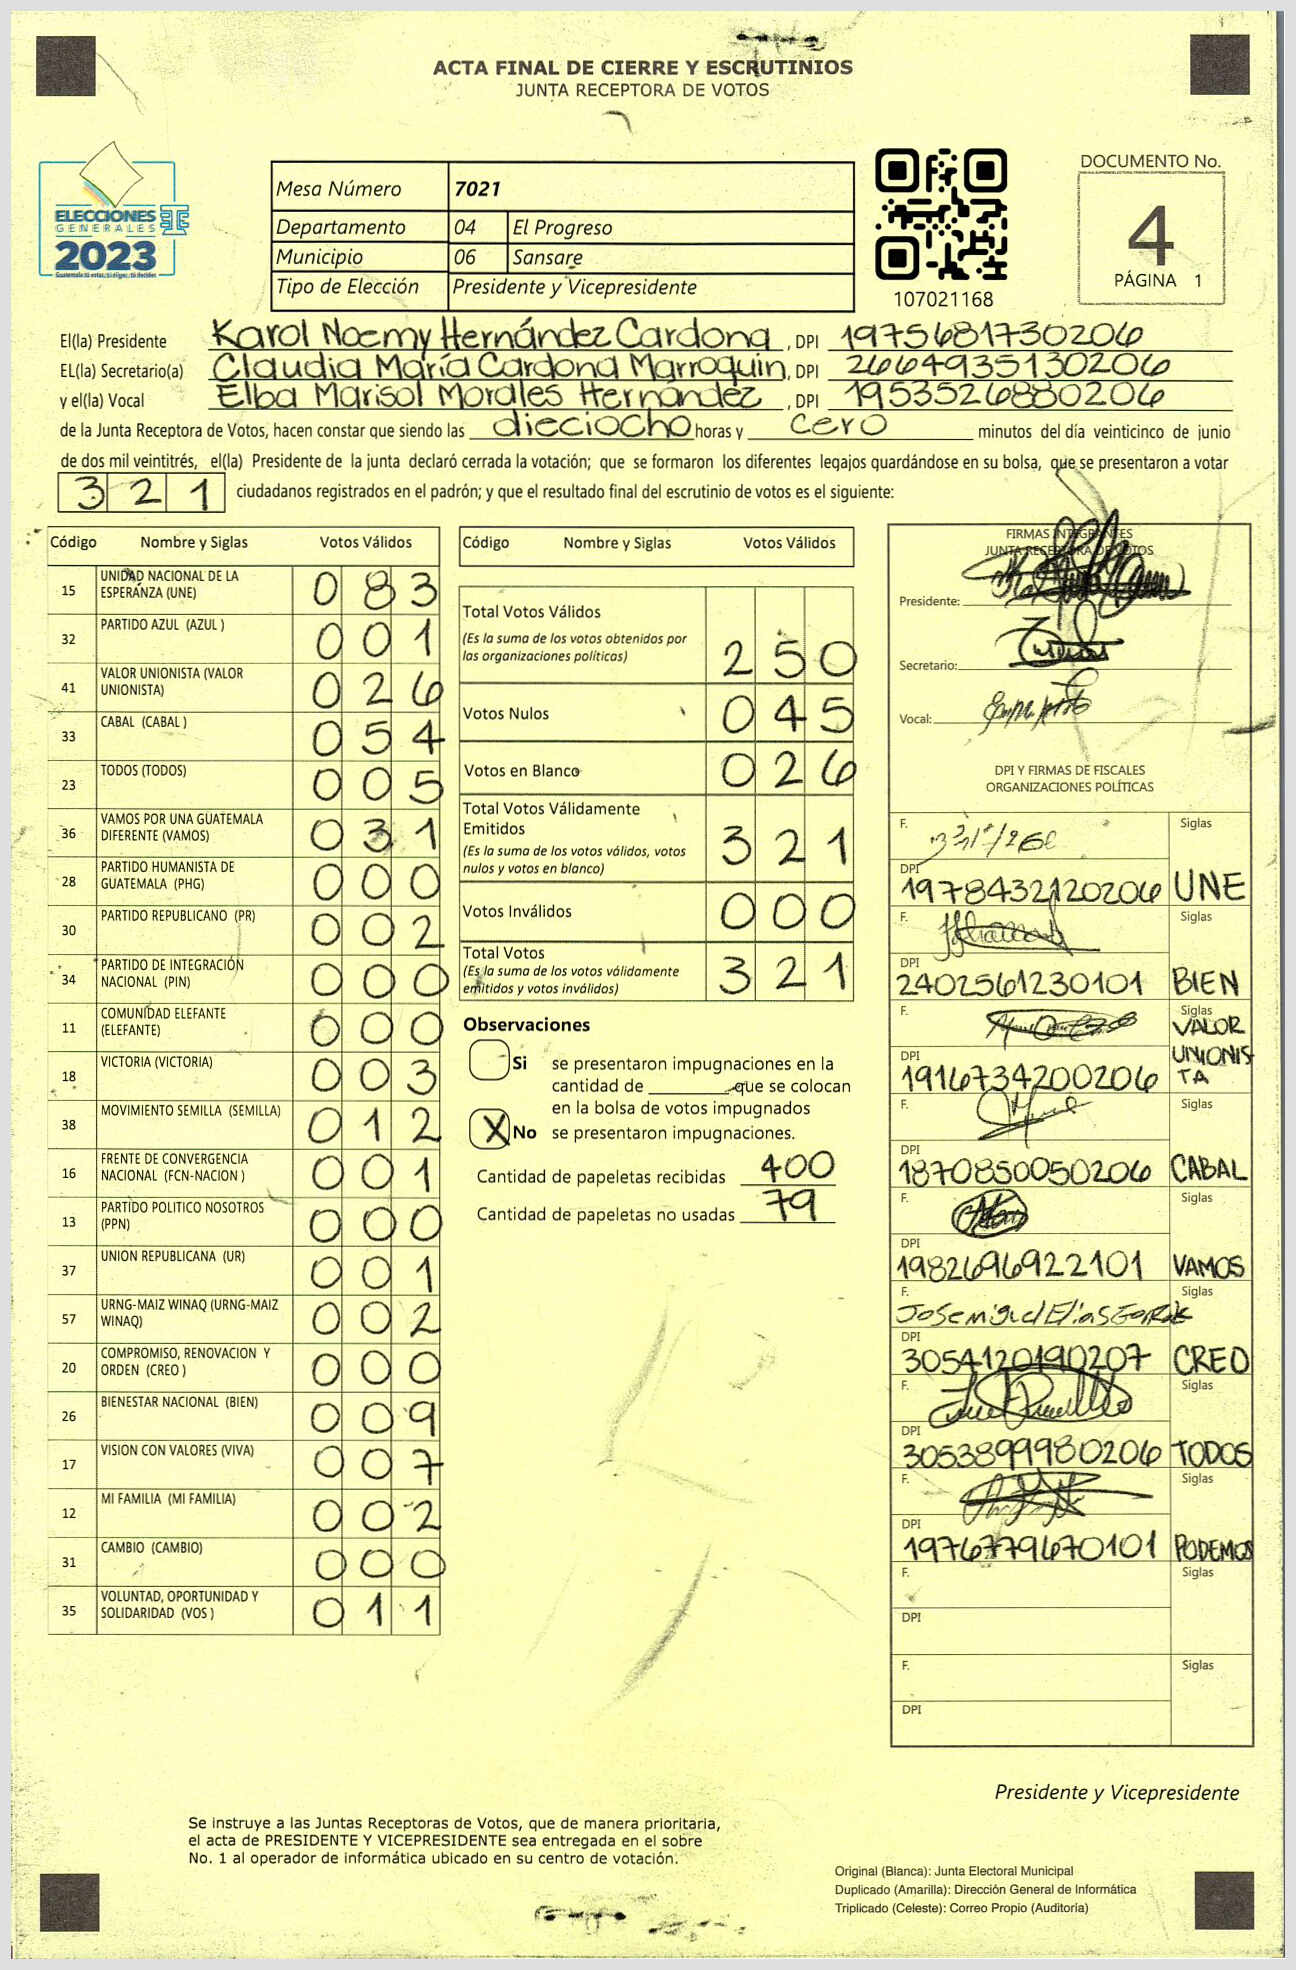 ACTA FINAL DE CIERRE Y ESCRUTINIOS
JUNTA RECEPTORA DE VOTOS
ELECCIONES
GENERALES
2023
Mesa Número 7021
Departamento 04 El Progreso
Municipio 06 Sansare
Tipo de Elección Presidente y Vicepresidente
107021168
DOCUMENTO No.
4
PÁGINA 1
El(la) Presidente Karol Noemy Hernández Cardona, DPI 1975681730206
EL(la) Secretario(a) Claudia María Cardona Marroquin, DPI 2664935130206
y el(la) Vocal Elba Marisol Morales Hernández, DPI 1953526880206
de la Junta Receptora de Votos, hacen constar que siendo las dieciocho horas y cero minutos del día veinticinco de junio
de dos mil veintitrés, el(la) Presidente de la junta declaró cerrada la votación; que se formaron los diferentes legajos guardándose en su bolsa, que se presentaron a votar
321 ciudadanos registrados en el padrón; y que el resultado final del escrutinio de votos es el siguiente:
Código Nombre y Siglas Votos Válidos
15 UNIDAD NACIONAL DE LA ESPERANZA (UNE) 083
32 PARTIDO AZUL (AZUL ) 001
41 VALOR UNIONISTA (VALOR UNIONISTA) 026
33 CABAL (CABAL ) 054
23 TODOS (TODOS) 005
36 VAMOS POR UNA GUATEMALA DIFERENTE (VAMOS) 031
28 PARTIDO HUMANISTA DE GUATEMALA (PHG) 000
30 PARTIDO REPUBLICANO (PR) 002
34 PARTIDO DE INTEGRACIÓN NACIONAL (PIN) 000
11 COMUNIDAD ELEFANTE (ELEFANTE) 000
18 VICTORIA (VICTORIA) 003
38 MOVIMIENTO SEMILLA (SEMILLA) 012
16 FRENTE DE CONVERGENCIA NACIONAL (FCN-NACION ) 001
13 PARTIDO POLITICO NOSOTROS (PPN) 000
37 UNION REPUBLICANA (UR) 001
57 URNG-MAIZ WINAQ (URNG-MAIZ WINAQ) 002
20 COMPROMISO, RENOVACION Y ORDEN (CREO ) 000
26 BIENESTAR NACIONAL (BIEN) 009
17 VISION CON VALORES (VIVA) 007
12 MI FAMILIA (MI FAMILIA) 002
31 CAMBIO (CAMBIO) 000
35 VOLUNTAD, OPORTUNIDAD Y SOLIDARIDAD (VOS ) 011
Código Nombre y Siglas Votos Válidos
Total Votos Válidos
(Es la suma de los votos obtenidos por
las organizaciones políticas) 250
Votos Nulos 045
Votos en Blanco 026
Total Votos Válidamente
Emitidos
(Es la suma de los votos válidos, votos
nulos y votos en blanco) 321
Votos Inválidos 000
Total Votos
(Es la suma de los votos válidamente
emitidos y votos inválidos) 321
Observaciones
Si se presentaron impugnaciones en la
cantidad de ________ que se colocan
en la bolsa de votos impugnados
X No se presentaron impugnaciones.
Cantidad de papeletas recibidas 400
Cantidad de papeletas no usadas 79
FIRMAS INTEGRANTES
JUNTA RECEPTORA DE VOTOS
Presidente:
Secretario:
Vocal:
DPI Y FIRMAS DE FISCALES
ORGANIZACIONES POLÍTICAS
F. Siglas
DPI 1978432120206 UNE
F. Siglas
DPI 2402561230101 BIEN
F. Siglas
DPI 1916734200206 VALOR UNIONISTA
F. Siglas
DPI 1870850050206 CABAL
F. Siglas
DPI 1982696922101 VAMOS
F. Siglas
DPI 3054120190207 CREO
F. Siglas
DPI 3053899980206 TODOS
F. Siglas
DPI 1976779670101 PODEMOS
F. Siglas
DPI
F. Siglas
DPI
Presidente y Vicepresidente
Se instruye a las Juntas Receptoras de Votos, que de manera prioritaria,
el acta de PRESIDENTE Y VICEPRESIDENTE sea entregada en el sobre
No. 1 al operador de informática ubicado en su centro de votación.
Original (Blanca): Junta Electoral Municipal
Duplicado (Amarilla): Dirección General de Informática
Triplicado (Celeste): Correo Propio (Auditoría)